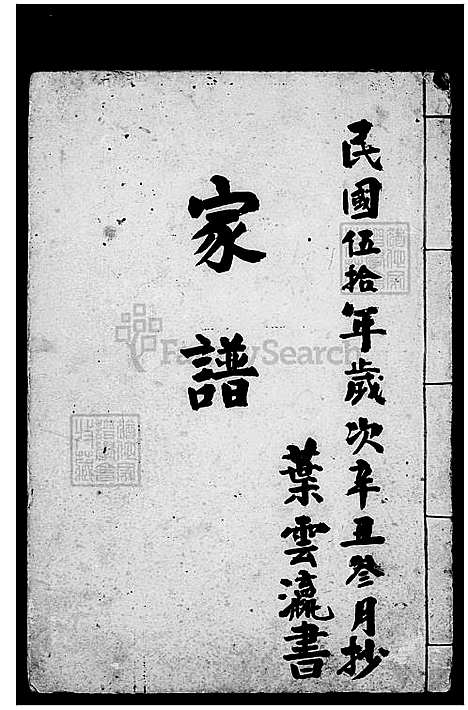 民國伍拾年歲次辛丑叁月抄
葉雲瀛書
家譜
FamilySearch